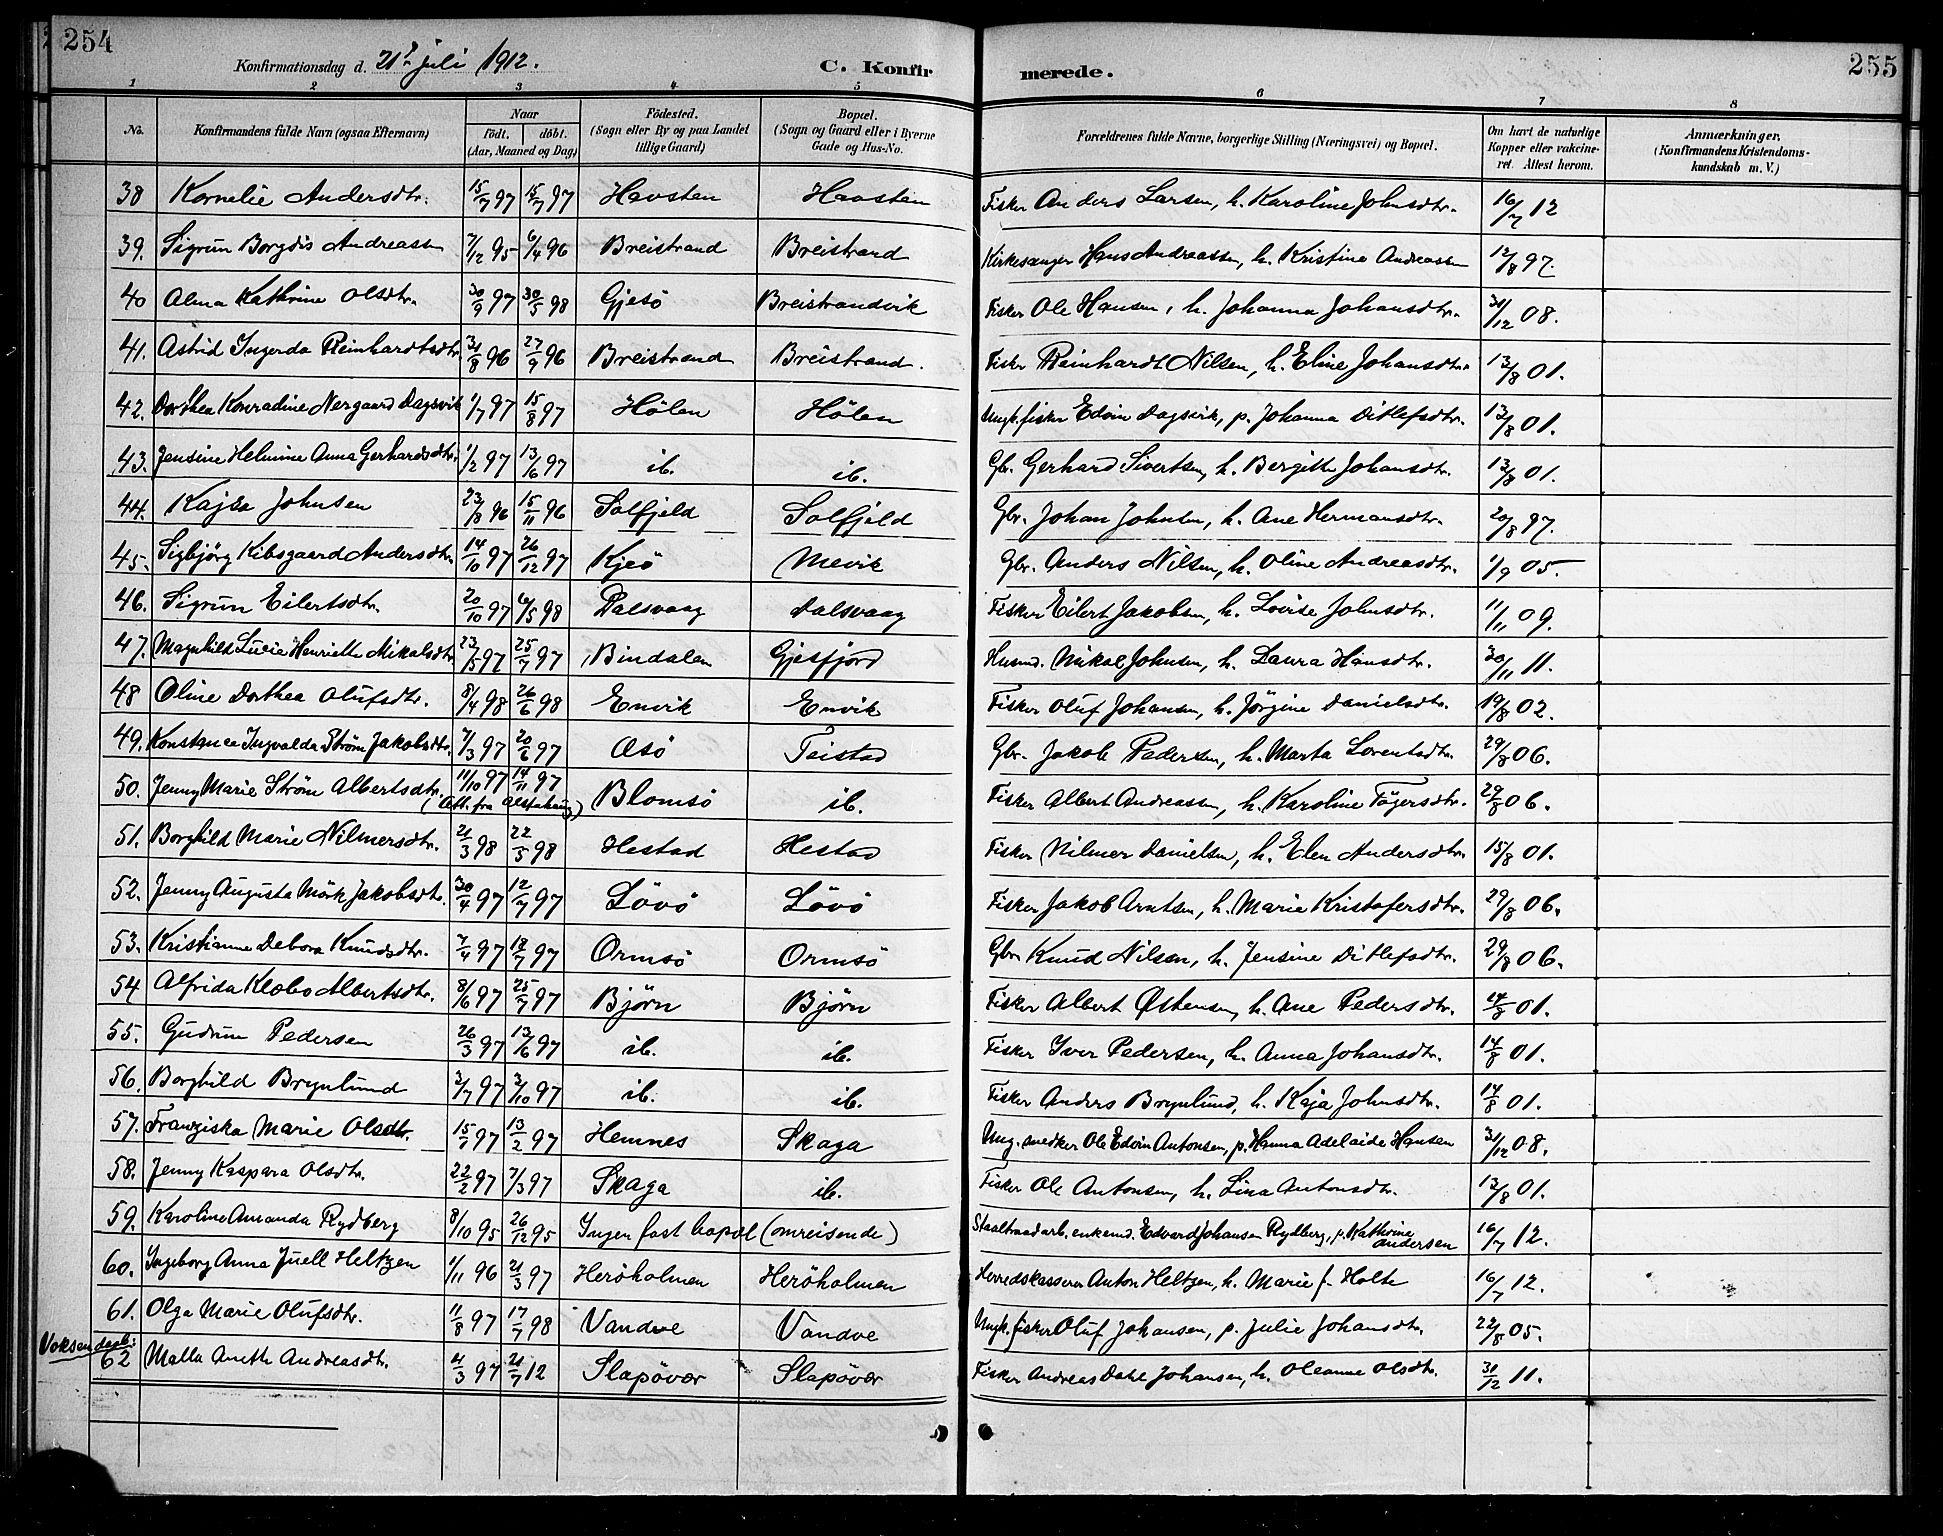 254
Konfirmationsdag d. 21de juli 1912.
C. Konfirmerede.
255
1 2 3 4 5 6 7 8
No. Konfirmandens fulde Navn (ogsaa Efternavn) Naar født. døbt. (Aar, Maaned og Dag) Fødested. (Sogn eller By og paa Landet tillige Gaard) Bopæl. (Sogn og Gaard eller i Byerne Gade og Hus-No. Forældrenes fulde Navne, borgerlige Stilling (Næringsvei) og Bopæl. Om havt de naturlige Kopper eller vakcineret. Attest herom. Anmærkninger. (Konfirmandens Kristendomskundskab m. V.)
38 Kornelie Andersdtr. 15/7 97 15/7 97 Havsten Havsten Fisker Anders Larsen, h. Karoline Johnsdtr. 16/7 12
39. Sigrun Borgdis Andreassen 7/12 95 6/4 96 Breistrand Breistrand Kirkesanger Hans Andreassen, h. Kristine Andreassen 12/8 97.
40 Alma Kathrine Olsdtr. 30/9 97 30/5 98 Gjesö Breistrandvik Fisker Ole Hansen, h. Johanna Johansdtr. 31/12 08.
41. Astrid Ingerda Reinhardtsdtr. 31/8 96 27/9 96 Breistrand Breistrand. Fisker Reinhardt Nilsen, h. Eline Johansdtr. 13/8 01.
42. Dorthea Konradine Nergaard Dagsvik 1/7 97 15/8 97 Hölen Hölen Ungk. fisker Edvin Dagsvik, p. Johanna Ditlefsdtr. 13/8 01.
43. Jensine Helmine Anna Gerhardsdtr. 1/2 97 13/6 97 ib. ib. Gbr. Gerhard Sivertsen, h. Bergitte Johansdtr. 13/8 01.
44. Kajsa Johnsen 23/8 96 15/11 96 Solfjeld Solfjeld Gbr. Johan Johnsen, h. Ane Hermansdtr. 20/8 97.
45. Sigbjörg Kibsgaard Andersdtr. 14/10 97 26/12 97 Kjeö Mevik Gbr. Anders Nilsen, h. Oline Andreasdtr. 1/9 05.
46. Sigrun Eilertsdtr. 20/10 97 6/5 98 Dalsvaag Dalsvaag Fisker Eilert Jakobsen, h. Lovise Johnsdtr. 11/11 09.
47. Magnhild Lucia Henriette Mikalsdtr. 23/5 97 25/7 97 Bindalen Gjesfjord Husmd. Mikal Johnsen, h. Laura Hansdtr. 30/11 11.
48 Oline Dorthea Olufsdtr. 8/4 98 26/6 98 Envik Envik Fisker Oluf Johansen, h. Jörgine Danielsdtr. 19/8 02.
49. Konstance Ingvalda Ström Jakobsdtr. 7/3 97 20/6 97 Åsö Teistad Gbr. Jakob Pedersen, h. Marta Lorentsdtr. 29/8 06.
50. Jenny Marie Ström Albertsdtr. 11/10 97 14/11 97 Blomsö ib. Fisker Albert Andreassen, h. Karoline Tögersdtr. 29/8 06.
(Att. fra Alstahaug)
51. Borghild Marie Nilmersdtr. 21/3 98 22/5 98 Hestad Hestad Fisker Nilmer Danielsen, h. Elen Andersdtr. 15/8 01.
52. Jenny Augusta Mörk Jakobsdtr. 30/4 97 12/7 97 Lövö Lövö Fisker Jakob Arntsen, h. Marie Kristofersdtr. 29/8 06.
53. Kristianne Debora Knudsdtr. 7/4 97 18/7 97 Ormsö Ormsö Gbr. Knud Nilsen, h. Jensine Ditlefsdtr. 29/8 06.
54 Alfrida Klæbo Albertsdtr. 8/6 97 25/7 97 Björn Björn Fisker Albert Østensen, h. Ane Pedersdtr. 14/8 01.
55. Gudrun Pedersen 26/3 97 13/6 97 ib. ib. Fisker Iver Pedersen, h. Anna Johansdtr. 14/8 01.
56. Borghild Brynlund 3/7 97 3/10 97 ib. ib. Fisker Anders Brynlund, h. Kaja Johnsdtr. 14/8 01.
57. Franziska Marie Olsdtr. 15/1 97 13/2 97 Hemnes Skaga Ung. snedker Ole Edvin Antonsen, p. Hanna Adelaide Hansen 31/12 08.
58. Jenny Kaspara Olsdtr. 22/2 97 7/3 97 Skaga ib. Fisker Ole Antonsen, h. Lina Antonsdtr. 13/8 01.
59. Karoline Amanda Rydberg 8/10 95 26/12 95 Ingen fast bopæl (omreisende) Staaltraadarb. enkemd. Edvard Johansen Rydberg, p. Kathrine Andersen 16/7 12.
60. Ingeborg Anna Juell Heltzen 1/11 96 21/3 97 Heröholmen Heröholmen Herredskasserer Anton Heltzen, h. Marie f. Holte 16/7 12.
61. Olga Marie Olufsdtr. 11/8 97 17/7 98 Vandve Vandve Ungk. fisker Oluf Johansen, p. Julie Johansdtr. 22/8 05.
Voksendøbt:
62 Malla Aneth Andreasdtr. 4/3 97 21/7 12 Slapövær Slapövær Fisker Andreas Dahl Johansen, h. Oleanne Olsdtr. 31/12 11.